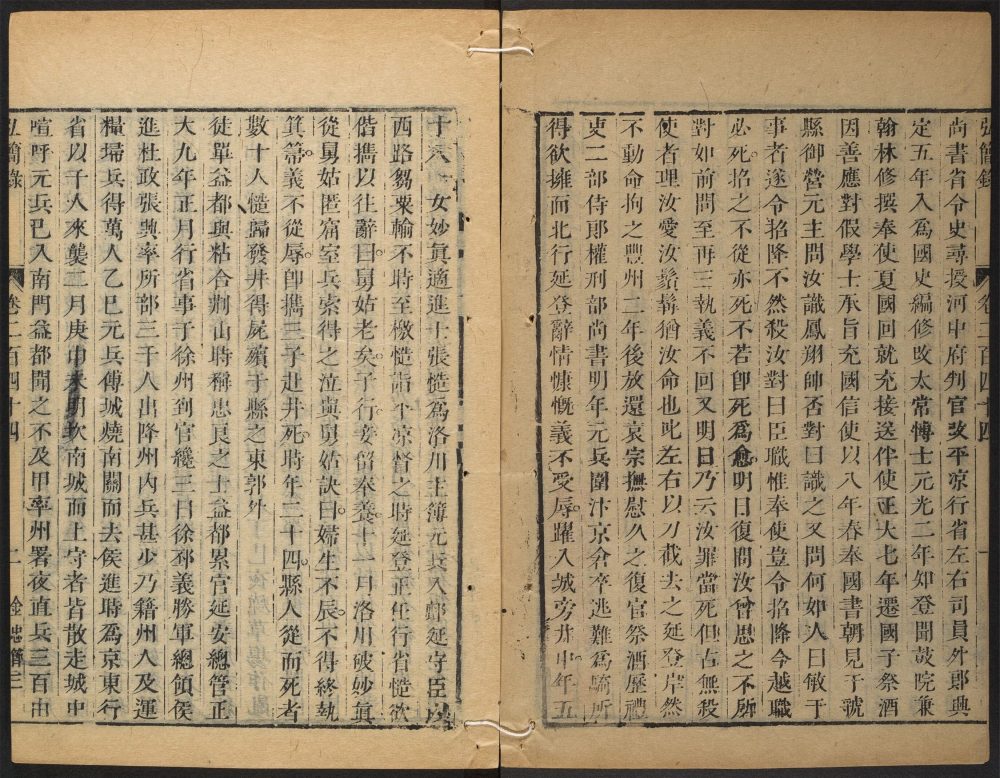 弘簡錄 卷二百四十四 一
尚書省令史尋授河中府判官改平凉行省左右司員外郎興
定五年入為國史編修改太常愽士元光二年知登聞鼓院兼
翰林修撰奉使夏國回就充接送伴使正大七年遷國子祭酒
因善應對假學士承旨充國信使以八年春奉國書朝見于虢
縣御營元主問汝識鳳翔帥否對曰識之又問何如人曰敏于
事者遂令招降不然殺汝對曰臣職惟奉使豈令招降今越職
必死招之不從亦死不若卽死為愈明日復問汝曾思之不所
對如前問至再三執義不回又明日乃云汝罪當死但古無殺
使者理汝愛汝鬚髯猶汝命也叱左右以刀截去之延登岸然
不動命拘之豐州二年後放還哀宗撫慰久之復官祭酒歷禮
吏二部侍郎權刑部尚書明年元兵圍汴京倉卒逃難為騎所
得欲擁而北行延登辭情慷慨義不受辱躍入城旁井中年五
十八 女妙眞適進士張慥為洛川主簿元兵入鄜延守臣
西路芻粟輸不時至檄慥詣平凉督之時延登正任行省慥欲
偕攜以往辭曰舅姑老矣子行妾留奉養十一月洛川破妙眞
從舅姑匿窟室兵索得之泣與舅姑訣曰婦生不辰不得終執
箕箒義不從辱卽攜三子赴井死時年二十四縣人從而死者
數十人慥歸發井得屍殯于縣之東郭外
徒單益都與粘合荆山時稱忠良之士益都累官延安總管正
大九年正月行省事于徐州到官纔三日徐邳義勝軍總領侯
進杜政張興率所部三千人出降州內兵甚少乃籍州人及運
糧埽兵得萬人乙巳元兵傅城燒南關而去侯進時為京東行
省以千人來襲二月庚申未明坎南城而上守者皆散走城中
喧呼元兵已入南門益都聞之不及甲率州署夜直兵三百由
弘簡錄 卷二百四十四 二